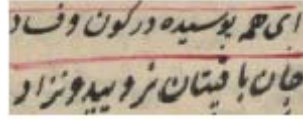 ای همه پوسیده در کون و فساد
جان باقیتان نرویید و نزاد